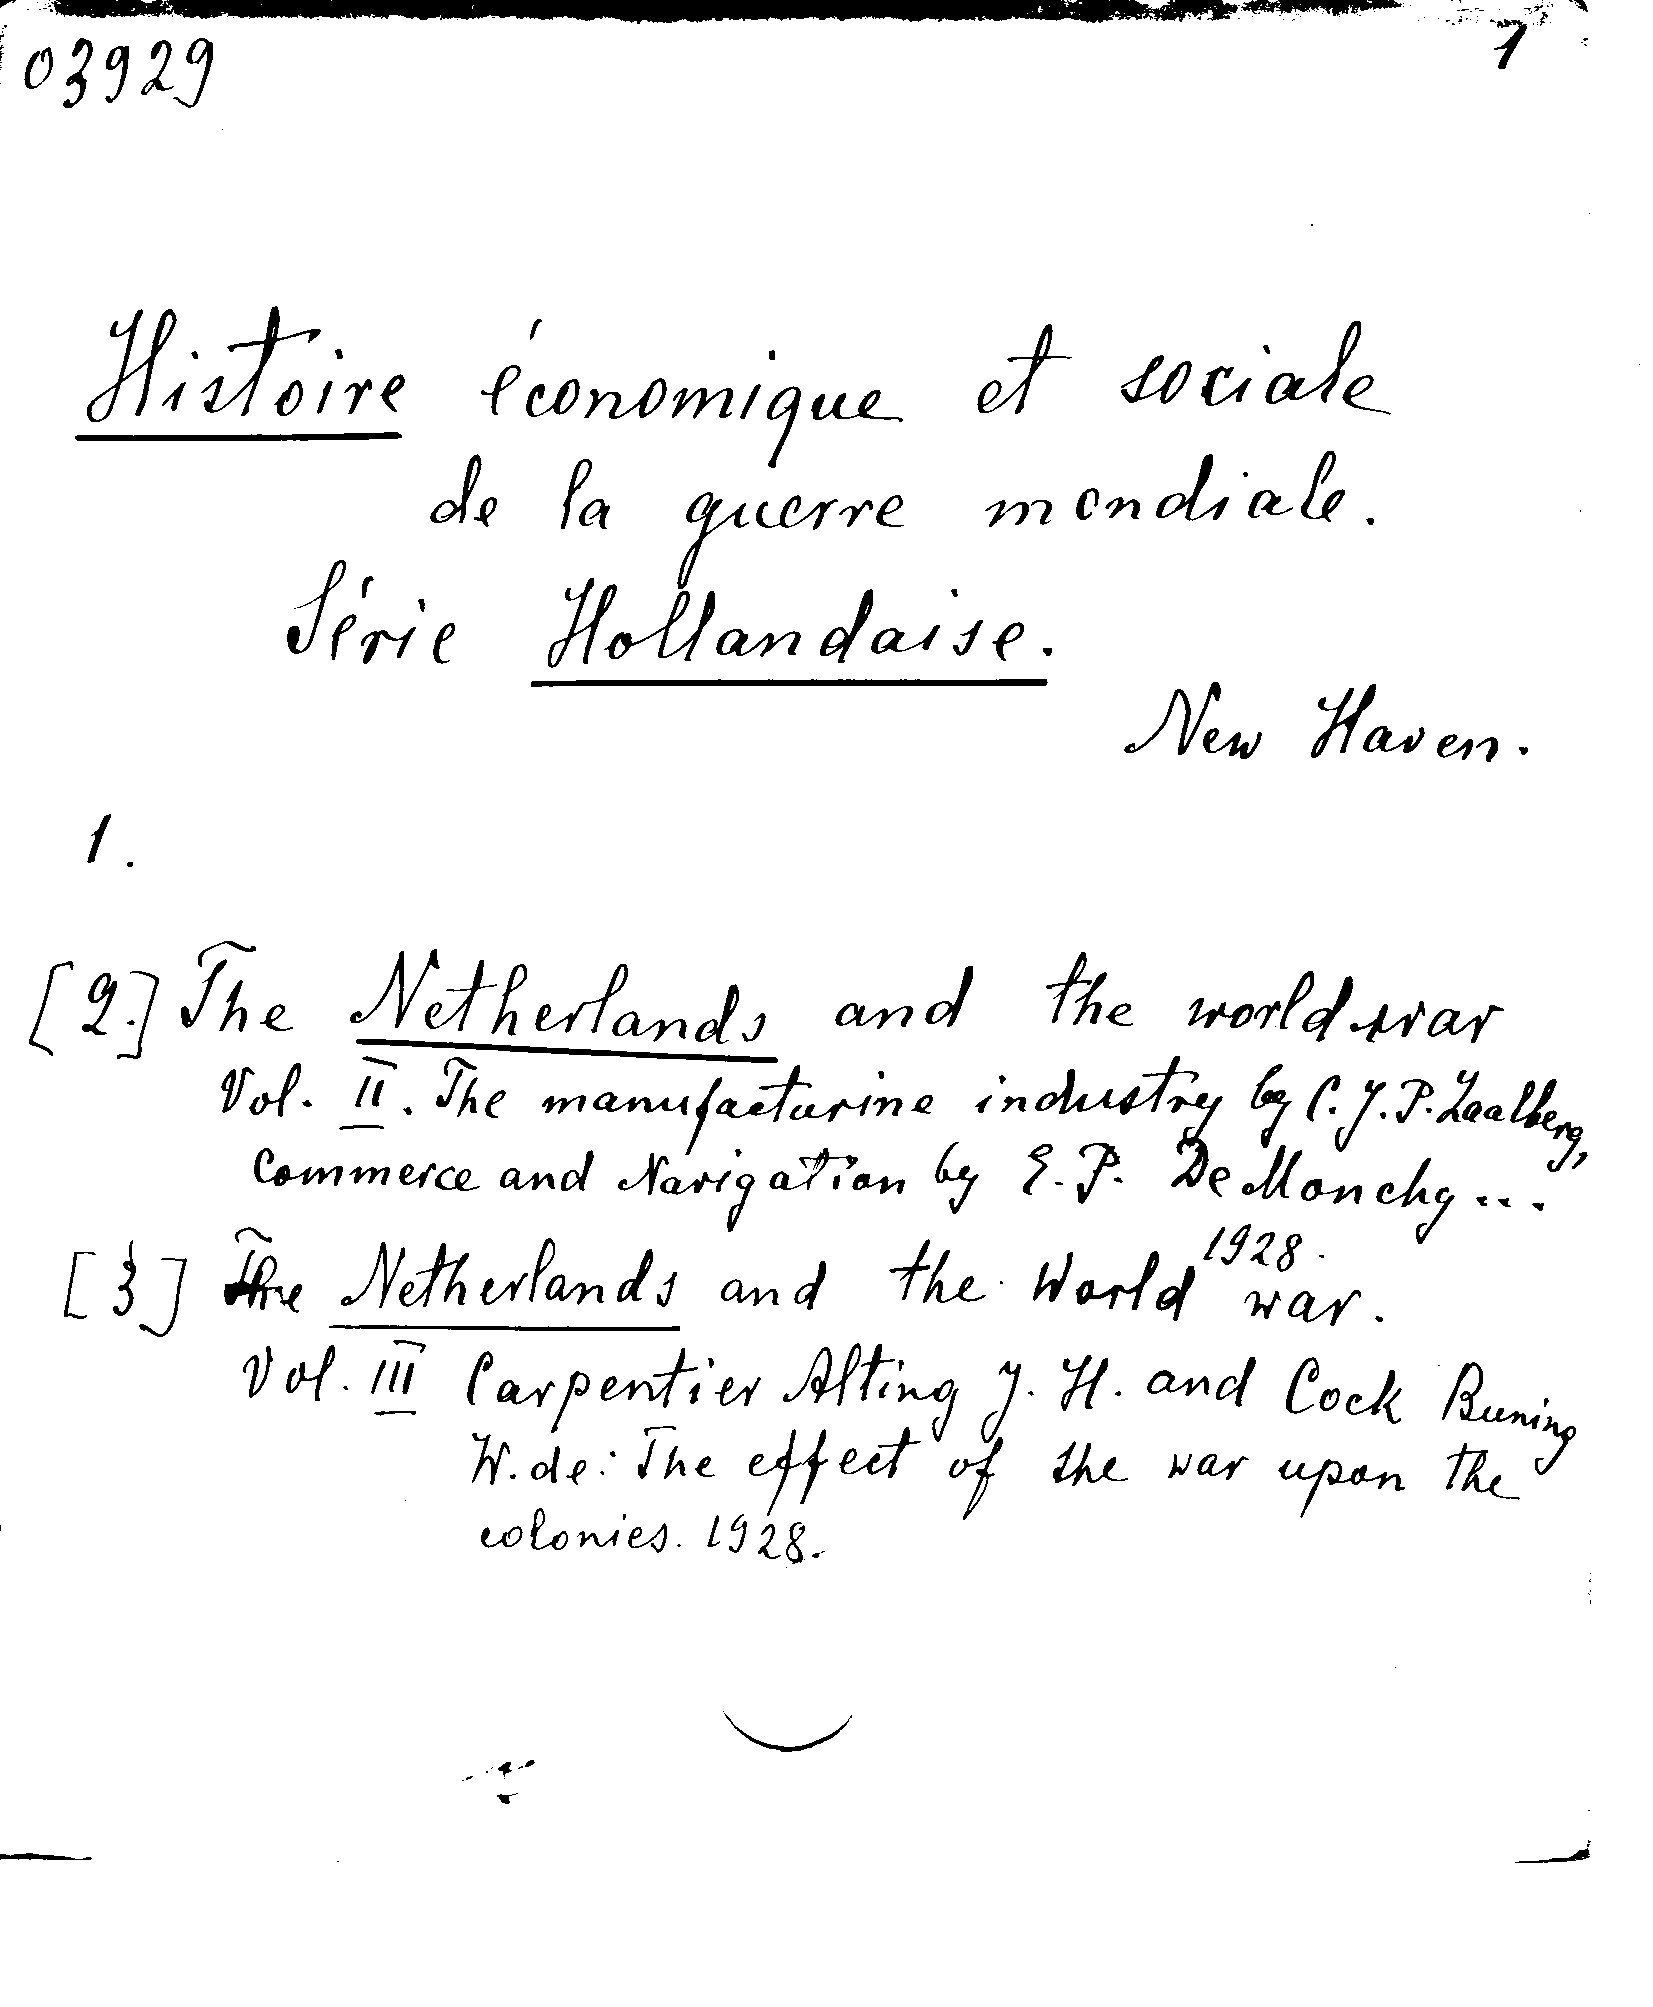 03929
1
Histoire économique et sociale
de la guerre mondiale.
Série Hollandaise.
New Haven.
1.
[2.] The Netherlands and the world war
Vol. II. The manufacturine industry by C. J. P. Zaalberg,
Commerce and Navigation by E. P. De Monchy...
1928.
[3] The Netherlands and the World war.
Vol. III Carpentier Alting J. H. and Cock Buning
W. de: The effect of the war upon the
colonies. 1928.